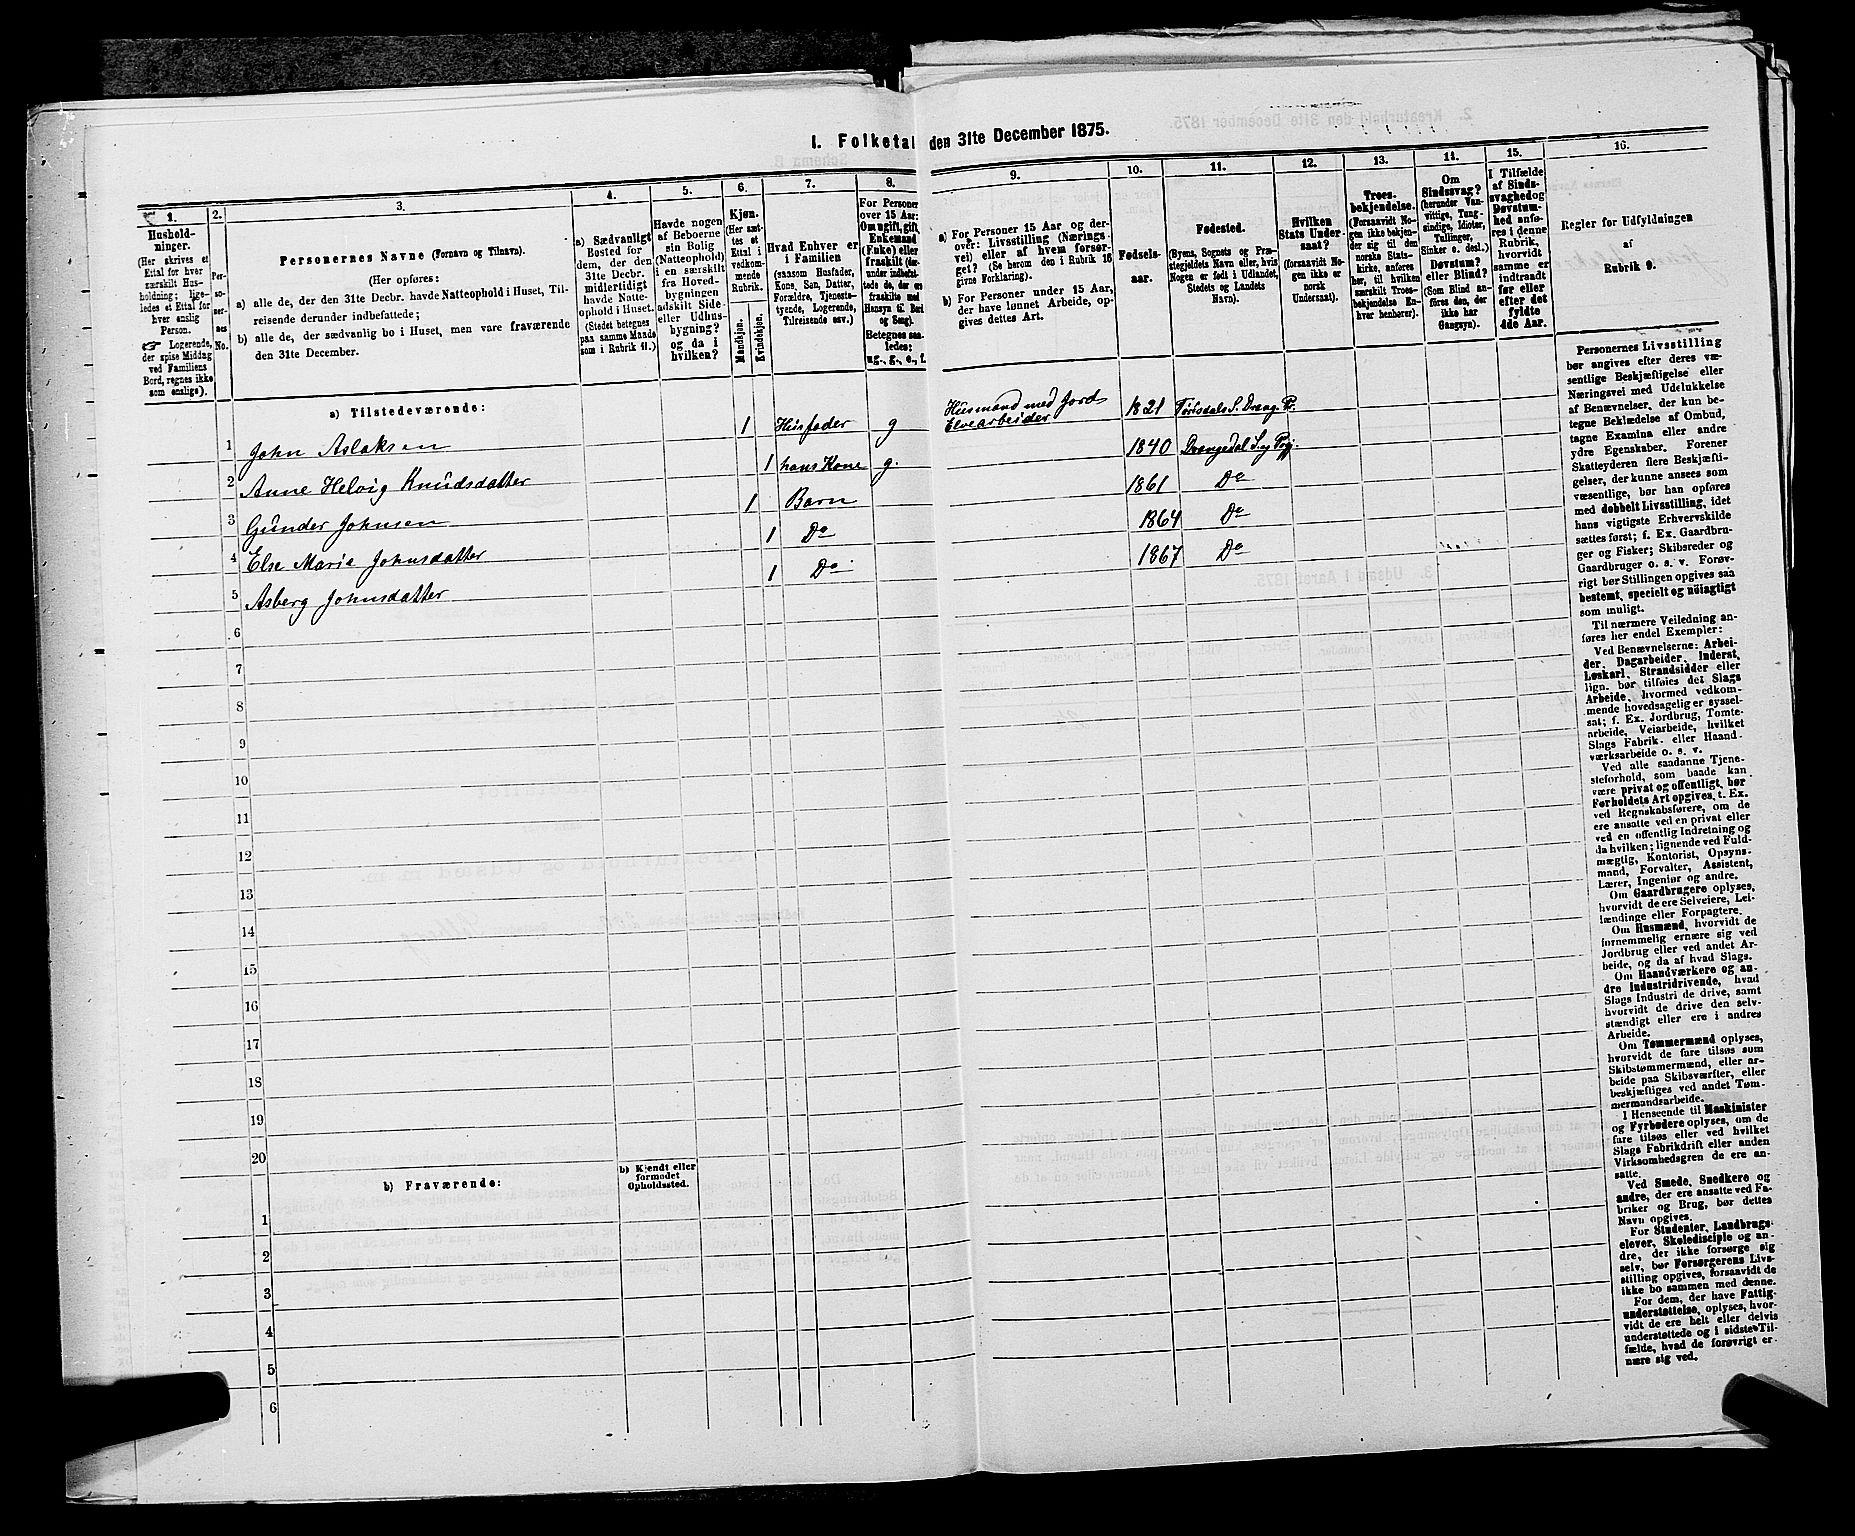 I. Folketal den 31te December 1875.
1.
Hushold-
ninger.
(Her skrives et
Ettal for hver
særskilt Hus-
holdning; lige-
ledes et Ettal for
hver enslig
Person.
☞ Logerende,
der spise Middag
ved Familiens
Bord, regnes ikke
som enslige).
2.
Per-
so-
ner-
nes
No.
3.
Personernes Navne (Fornavn og Tilnavn).
(Her opføres:
a) alle de, der den 31te Decbr. havde Natteophold i Huset, Til-
reisende derunder indbefattede;
b) alle de, der sædvanlig bo i Huset, men vare fraværende
den 31te December.
4.
a) Sædvanligt
Bosted for
dem, der den
31te Decbr.
midlertidigt
havde Natte-
ophold i Huset.
(Stedet betegnes
paa samme Maade
som i Rubrik 11.)
5.
Havde nogen
af Beboerne
sin Bolig
(Natteophold)
i en særskilt
fra Hoved-
bygningen
adskilt Side-
eller Udhus-
bygning?
og da i
hvilken?
6.
Kjøn.
(Her sæt-
tes et
Ettal i
vedkom-
mende
Rubrik.
Mandkjøn.
Kvindekjøn.
7.
Hvad Enhver er
i Familien
(saasom Husfader,
Kone, Søn, Datter,
Forældre, Tjeneste-
tyende, Logerende,
Tilreisende osv.)
8.
For Personer
over 15 Aar:
Om ugift, gift,
Enkemand
(Enke) eller
fraskilt (der-
under indbefat-
tede de, der ere
fraskilte med
Hensyn til Bord
og Seng).
Betegnes saa-
ledes:
ug-, g-, e-, f.
9.
a) For Personer 15 Aar og der-
over: Livsstilling (Nærings-
vei) eller af hvem forsør-
get? (Se herom den i Rubrik 16
givne Forklaring).
b) For Personer under 15 Aar,
der have lønnet Arbeide, op-
gives dettes Art.
10.
Fødsels-
aar.
11.
Fødested.
(Byens, Sognets og Præ-
stegjeldets Navn eller, hvis
Nogen er født i Udlandet,
Stedets og Landets
Navn).
12.
Hvilken
Stats Under-
saat?
(forsaavidt No-
gen ikke er
norsk
Undersaat).
13.
Troes-
bekjendelse.
(Forsaavidt No-
gen ikke bekjen-
der sig til den
norske Stats-
kirke, anføres
her, til hvilken
særskilt Troes-
bekjendelse En-
hver henhører).
14.
Om
Sindssvag?
(herunder Van-
vittige, Tung-
sindige, Idioter,
Tullinger,
Sinker o. desl.)
Døvstum?
eller Blind?
(Som Blind an-
føres den, der
ikke har
Gangsyn).
15.
I Tilfælde
af Sinds-
svaghed og
Døvstum-
hed anfø-
res i denne
Rubrik,
hvorvidt
samme er
indtraadt
før eller
efter det
fyldte
4de Aar.
16.
Regler for Udfyldningen
af
Rubrik 9.
a) Tilstedeværende:
1 John Aslaksen 1 Husfader g Husmand med Jord Elvearbeider 1821 Tørisdals S. Drang. Pr.
2 Anne Helvig Knudsdatter 1 hans Kone g. 1840 Drangedal S. og Prgj.
3 Gunder Johnsen 1 Barn 1861 Do
4 Else Maria Johnsdatter 1 Do 1864 Do
5 Asberg Johnsdatter 1 Do 1867 Do
6
7
8
9
10
11
12
13
14
15
16
17
18
19
20
b) Fraværende:
b) Kjendt eller
formodet
Opholdssted.
1
2
3
4
5
6
Personernes Livsstilling
bør angives efter deres væ-
sentlige Beskjæftigelse eller
Næringsvei med Udelukkelse
af Benævnelser, der kun be-
tegne Beklædelse af Ombud,
tagne Examina eller andre
ydre Egenskaber. Forener
Skatteyderen flere Beskjæfti-
gelser, der kunne ansees som
væsentlige, bør han opføres
med dobbelt Livsstilling, idet
hans vigtigste Erhvervskilde
sættes først; f. Ex. Gaardbru-
ger og Fisker; Skibsreder og
Gaardbruger o. s. v. Forøv-
rigt bør Stillingen opgives saa
bestemt, specielt og nøiagtigt
som muligt.
Til nærmere Veiledning an-
føres her endel Exempler:
Ved Benævnelserne: Arbei-
der, Dagarbeider, Inderst,
Løskarl, Strandsidder eller
lign. bør tilføies det Slags
Arbeide, hvormed vedkom-
mende hovedsagelig er syssel-
sat; f. Ex. Jordbrug, Tomte-
arbeide, Veiarbeide, hvilket
Slags Fabrik- eller Haand-
værksarbeide o. s. v.
Ved alle saadanne Tjene-
steforhold, som baade kan
være privat og offentligt, bør
Forholdets Art opgives, t. Ex.
ved Regnskabsførere, om de
ere ansatte ved en privat eller
ved en offentlig Indretning og
da hvilken; lignende ved Fuld-
mægtig, Kontorist, Opsyns-
mand, Forvalter, Assistent,
Lærer, Ingeniør og andre.
Om Gaardbrugere oplyses,
hvorvidt de ere Selveiere, Lei-
lændinge eller Forpagtere.
Om Husmænd, hvorvidt de
fornemmelig ernære sig ved
Jordbrug eller ved andet Ar-
beide, og da af hvad Slags.
Om Haandværkere og an-
dre Industridrivende, hvad
Slags Industri de drive, samt
hvorvidt de drive den selv-
stændigt eller ere i andres
Arbeide.
Om Tømmermænd oplyses,
hvorvidt de fare tilsøs som
Skibstømmermænd, eller ar-
beide paa Skibsværfter, eller
beskjæftiges ved andet Tøm-
mermandsarbeide.
I Henseende til Maskinister
og Fyrbødere oplyses, om de
fare tilsøs eller ved hvilket
Slags Fabrikdrift eller anden
Virksomhedsgren de ere an-
satte.
Ved Smede, Snedkere og
andre, der ere ansatte ved Fa-
briker og Brug, bør dettes
Navn opgives.
For Studenter, Landbrugs-
elever, Skoledisciple og an-
dre, der ikke forsørge sig
selv, bør Forsørgerens Livs-
stilling opgives, forsaavidt de
ikke bo sammen med denne.
For dem, der have Fattig-
understøttelse, oplyses, hvor-
vidt de ere helt eller delvis
understøttede og i sidste Til-
fælde, hvad de forøvrigt er-
nære sig ved.